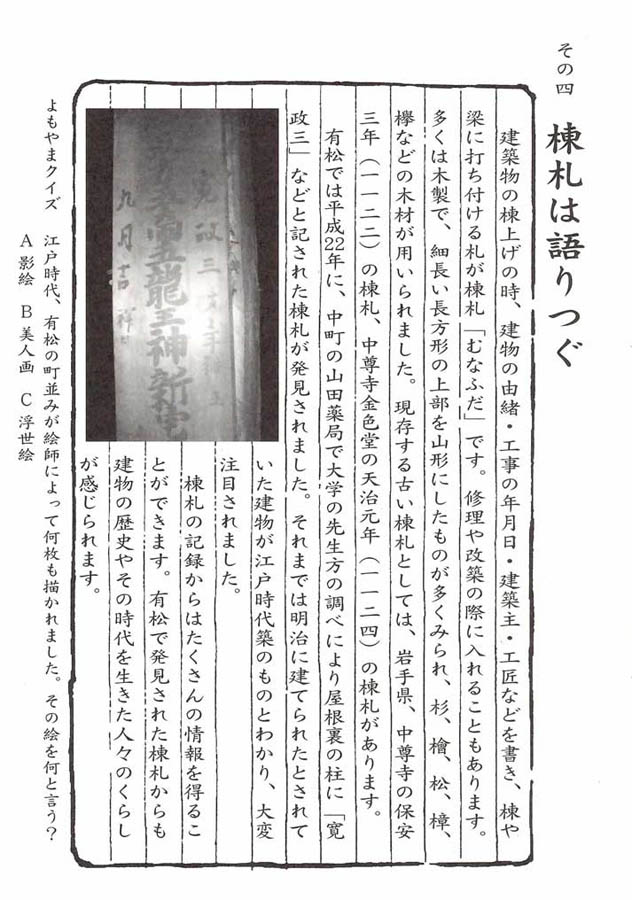 その四
棟札は語りつぐ
建築物の棟上げの時、建物の由緒・工事の年月日・建築主・工匠などを書き、棟や
梁に打ち付ける札が棟札「むなふだ」です。修理や改築の際に入れることもあります。
多くは木製で、細長い長方形の上部を山形にしたものが多くみられ、杉、檜、松、樟、
欅などの木材が用いられました。現存する古い棟札としては、岩手県、中尊寺の保安
三年（一一二二）の棟札、中尊寺金色堂の天治元年（一一二四）の棟札があります。
有松では平成22年に、中町の山田薬局で大学の先生方の調べにより屋根裏の柱に「寛
政三」などと記された棟札が発見されました。それまでは明治に建てられたとされて
いた建物が江戸時代築のものとわかり、大変
注目されました。
棟札の記録からはたくさんの情報を得るこ
とができます。有松で発見された棟札からも
建物の歴史やその時代を生きた人々のくらし
が感じられます。
寛政三
五龍王神新宅
九月吉祥日
よもやまクイズ　江戸時代、有松の町並みが絵師によって何枚も描かれました。その絵を何と言う？
A 影絵　B 美人画　C 浮世絵